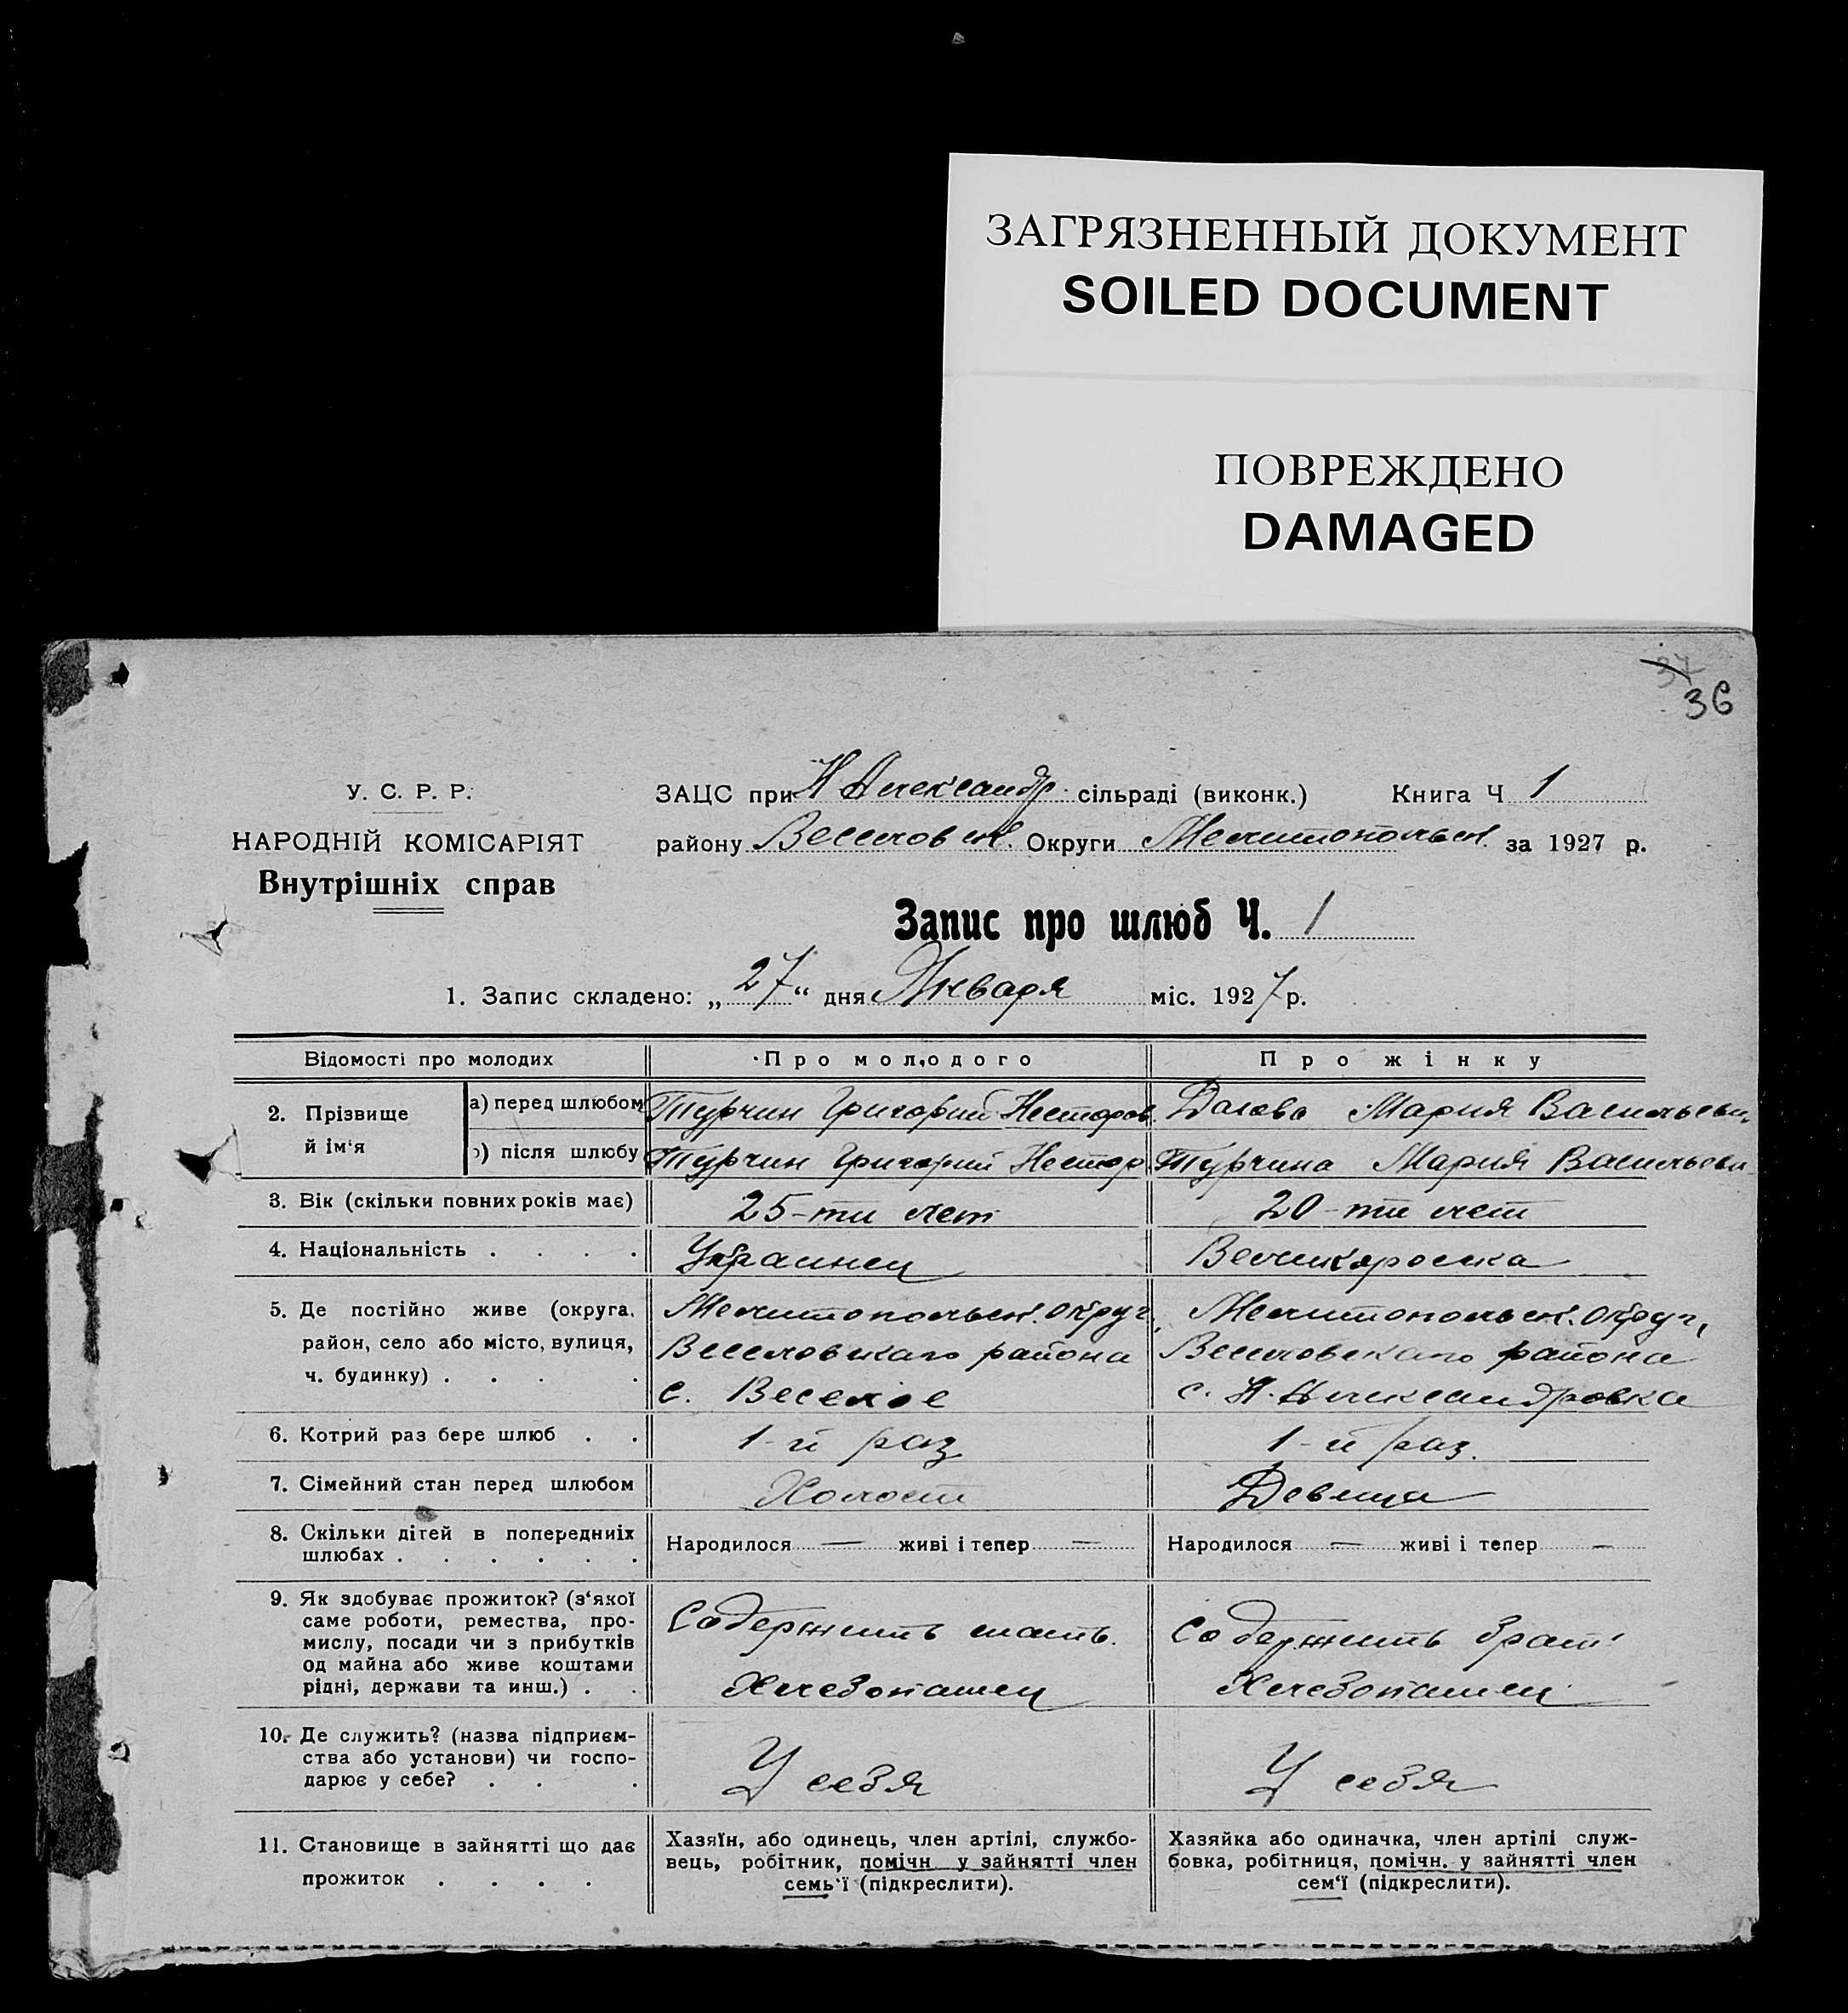 ЗАГРЯЗНЕННЫЙ ДОКУМЕНТ
SOILED DOCUMENT
ПОВРЕЖДЕНО
DAMAGED
37
36
У. С. Р. Р.
НАРОДНІЙ КОМІСАРІЯТ
Внутрішніх справ
ЗАЦС при Н Александр. сільраді (виконк.) Книга Ч 1
району Веселовск. Округи Мелитопольск. за 1927 р.
Запис про шлюб Ч. 1
1. Запис складено: „27“ дня Января міс. 1927 р.
Відомості про молодих Про молодого Про жінку
2. Прізвище й ім‘я
а) перед шлюбом Турчин Григорий Несторов. Мария Васильевн.
) після шлюбу Турчин Григорий Нестор Турчина Мария Васильевн
3. Вік (скільки повних років має) 25-ти лет 20-ти лет
4. Національність . . . . Украинец Великороска
5. Де постійно живе (округа, Мелитопольск. округ, Мелитопольск. округ,
район, село або місто, вулиця, Веселовскаго района Веселовскаго района
ч. будинку) . . . . с. Веселое с. Н. Александровка
6. Котрий раз бере шлюб . . 1-й раз 1-й раз.
7. Сімейний стан перед шлюбом Холост Девица
8. Скільки дітей в попередниіх Народилося — живі і тепер — Народилося — живі і тепер —
шлюбах . . . . . .
9. Як здобуває прожиток? (з‘якої
саме роботи, ремества, про-
мислу, посади чи з прибутків
од майна або живе коштами
рідні, держави та инш.) . .
Содержить мать.
Хлебопашец
Содержить брат
Хлебопашец
10. Де служить? (назва підприєм-
ства або установи) чи госпо-
дарює у себе? . . .
У себя
У себя
11. Становище в зайнятті що дає
прожиток . . . .
Хазяїн, або одинець, член артілі, службо-
вець, робітник, помічн у зайнятті член
семь‘ї (підкреслити).
Хазяйка або одиначка, член артілі служ-
бовка, робітниця, помічн. у зайнятті член
сем‘ї (підкреслити).